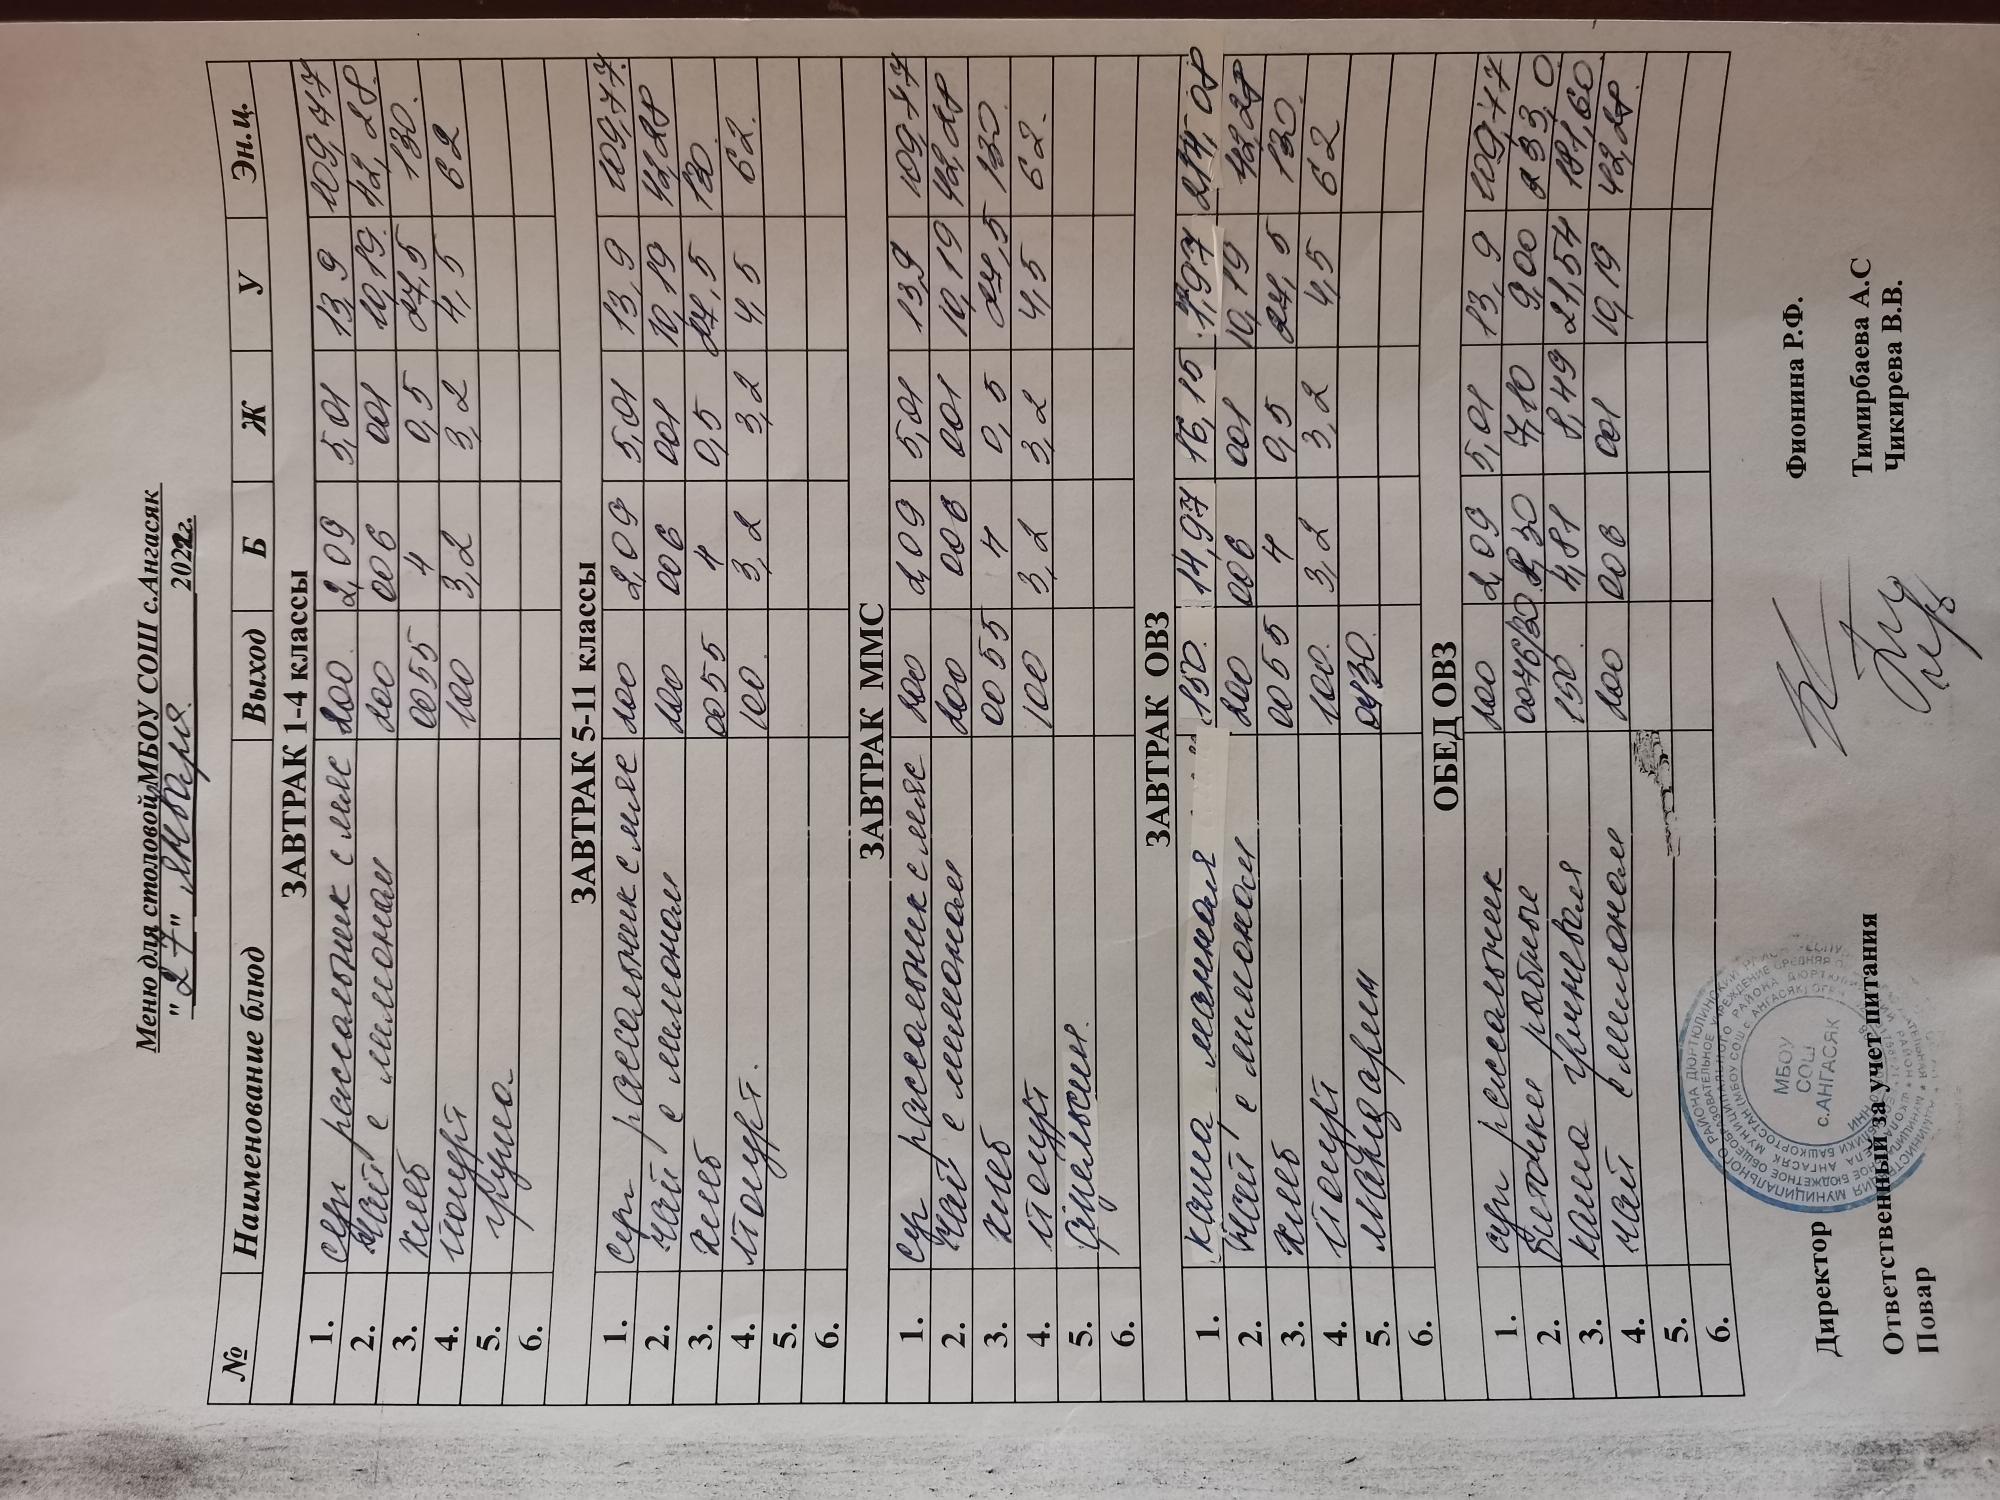 Меню для столовой МБОУ СОШ с.Ангасяк
"27" января 2022г.
№ Наименование блюд Выход Б Ж У Эн.ц.
ЗАВТРАК 1-4 классы
1. суп рассольник с мяс 200 2,09 5,01 13,9 109,77
2. чай с лимоном 200 006 001 10,19 42,28
3. хлеб 0055 4 0,5 27,5 130
4. йогурт 100 3,2 3,2 4,5 62
5. груша
6.
ЗАВТРАК 5-11 классы
1. суп рассольник с мяс 200 2,09 5,01 13,9 109,77
2. чай с лимоном 200 006 001 10,19 42,28
3. хлеб 0055 4 0,5 27,5 130
4. йогурт. 100 3,2 3,2 4,5 62
5.
6.
ЗАВТРАК ММС
1. суп рассольник с мяс 200 2,09 5,01 13,9 109,77
2. чай с лимоном 200 006 001 10,19 42,28
3. хлеб 0055 4 0,5 27,5 130
4. йогурт 100 3,2 3,2 4,5 62
5. апельсин
6.
ЗАВТРАК ОВЗ
1. каша манная 150 14,97 16,15 1,97 214,08
2. чай с лимоном 200 006 001 10,19 42,28
3. хлеб 0055 4 0,5 27,5 130
4. йогурт 100 3,2 3,2 4,5 62
5. мандарин 0430
6.
ОБЕД ОВЗ
1. суп рассольник 200 2,09 5,01 13,9 109,77
2. биточки рыбные 0046/20 8,30 7,10 9,00 233,0
3. каша гречневая 150 4,81 8,49 21,54 181,60
4. чай с лимоном 200 006 001 10,19 42,28
5.
6.
Директор Фионина Р.Ф.
Ответственный за учет питания Тимирбаева А.С
Повар Чикирева В.В.
МБОУ
СОШ
с.АНГАСЯК